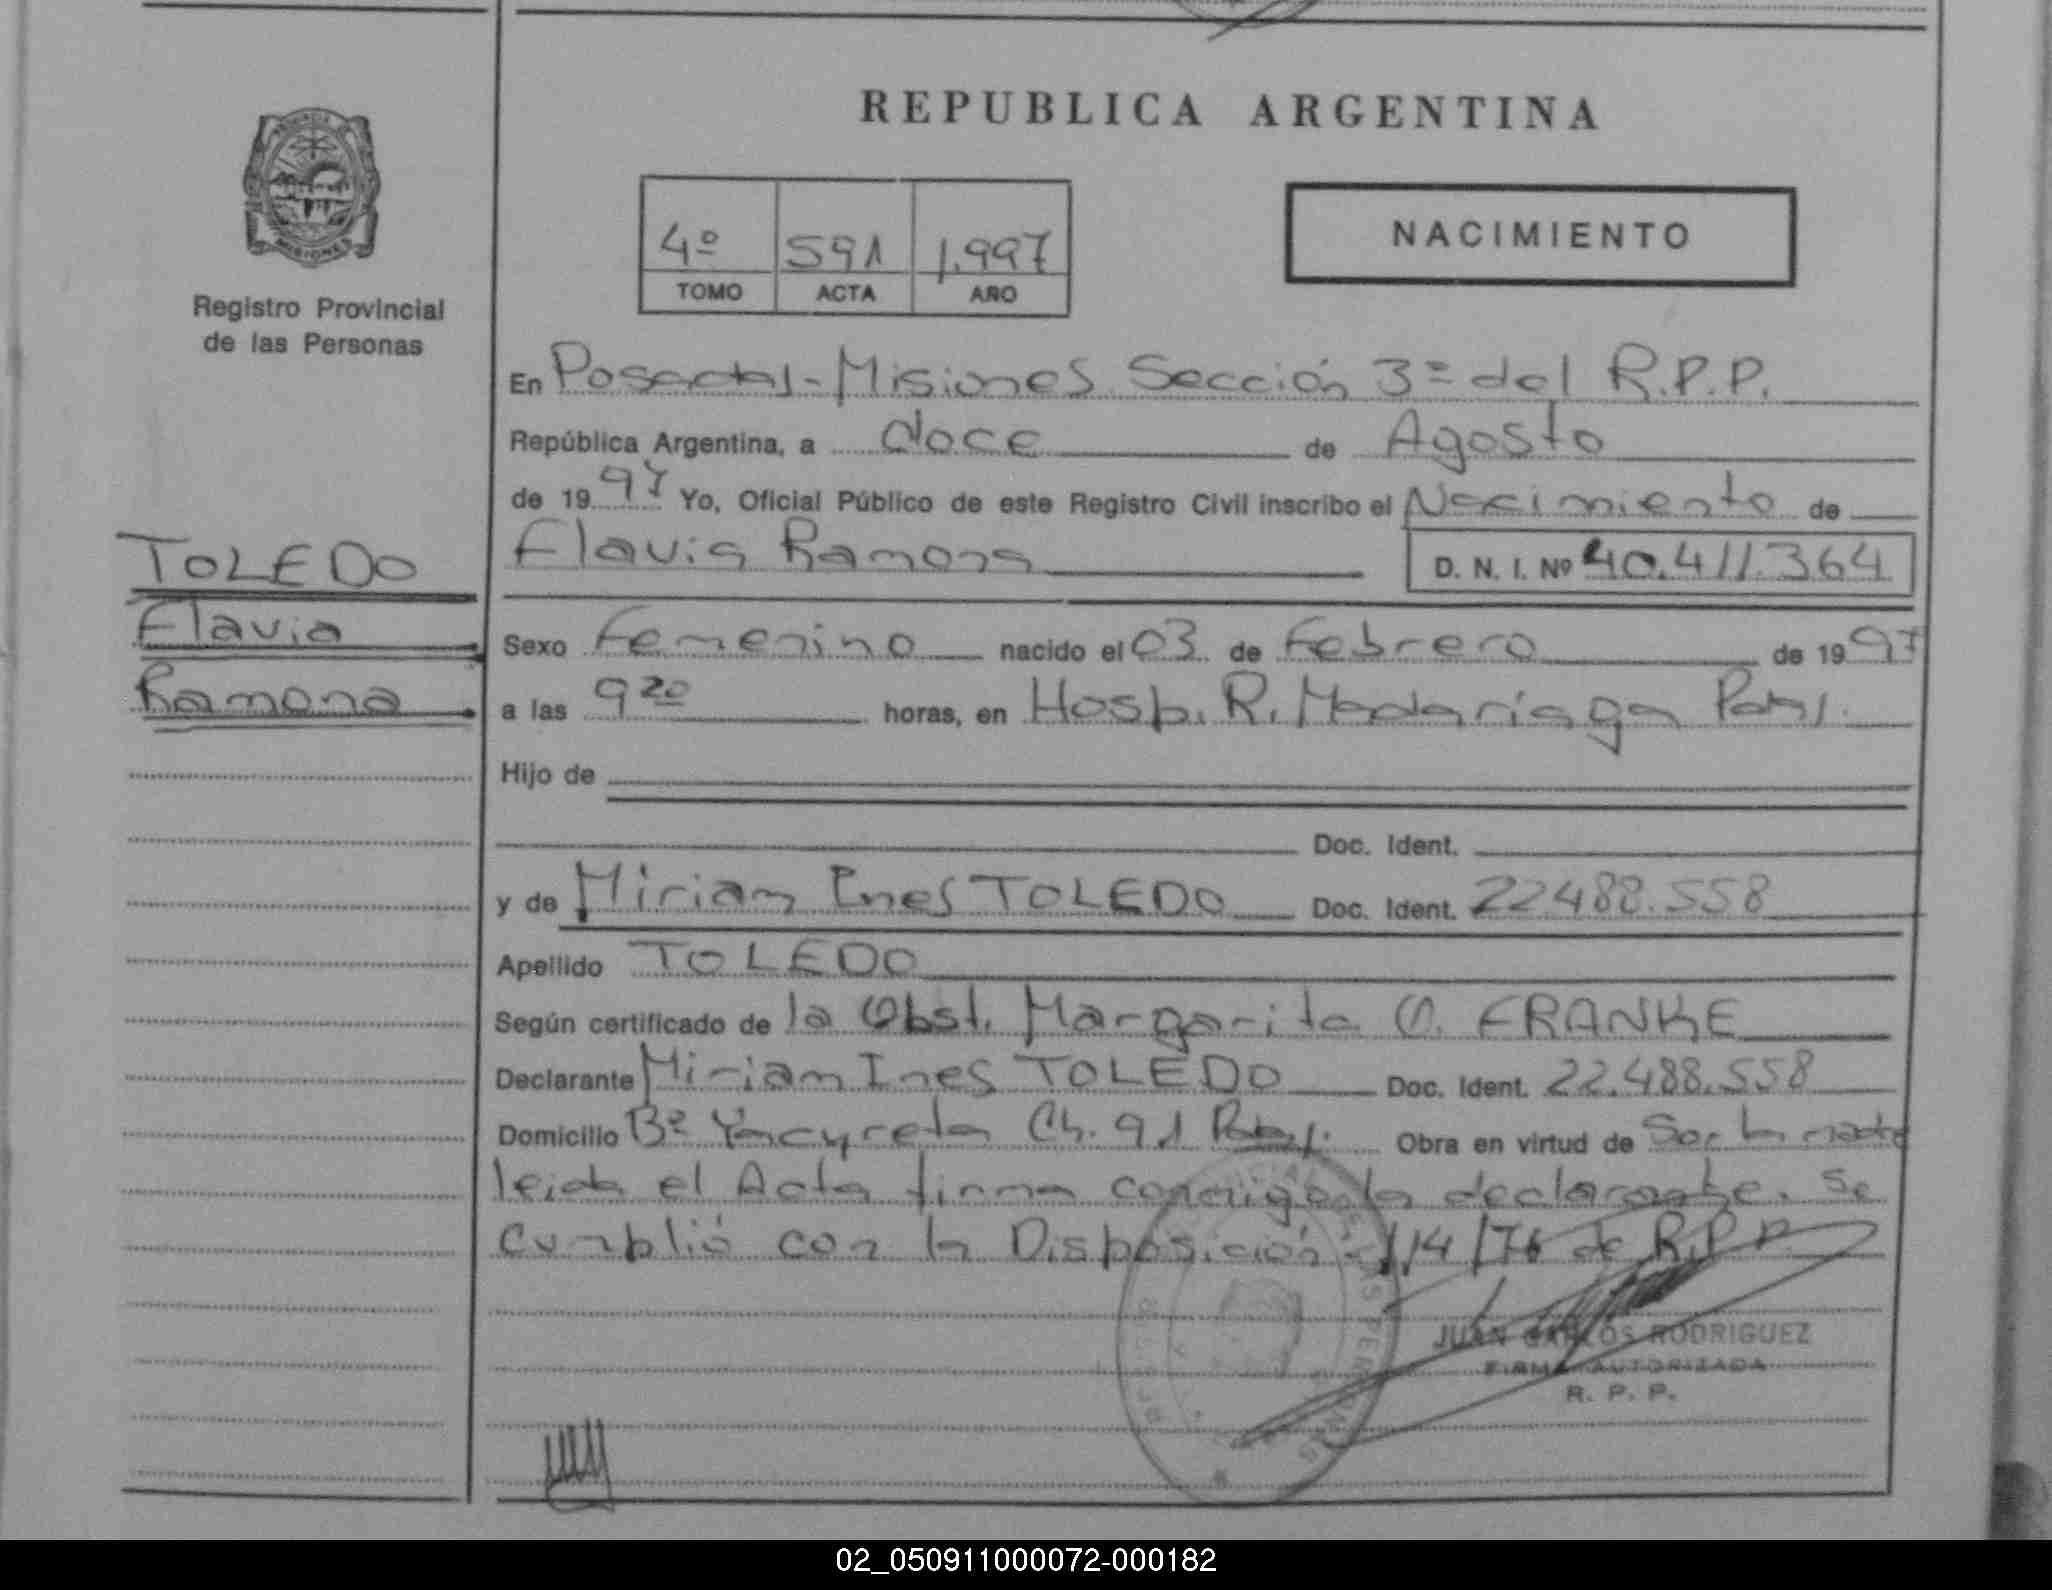 REPUBLICA ARGENTINA
PROVINCIA DE
MISIONES
Registro Provincial
de las Personas
4º 591 1.997
TOMO ACTA AÑO
NACIMIENTO
En Posadas - Misiones Sección 3ª del R.P.P.
República Argentina, a doce de Agosto
de 1997 Yo, Oficial Público de este Registro Civil inscribo el Nacimiento de
Flavia Ramona
D. N. I. Nº 40.411.364
TOLEDO
Flavia
Ramona
Sexo Femenino nacido el 03 de Febrero de 1997
a las 9 20 horas, en Hosp. R. Madariaga Pdas.
Hijo de
Doc. Ident.
y de Miriam Ines TOLEDO Doc. Ident. 22.488.558
Apellido TOLEDO
Según certificado de la Obst. Margarita O. FRANKE
Declarante Miriam Ines TOLEDO Doc. Ident. 22.488.558
Domicilio Bº Yacyreta Ch. 91 Pdas. Obra en virtud de Ser la madre
leida el Acta firma conmigo la declarante. Se
cumplió con la Disposición 114/76 de R.P.P.
JUAN CARLOS RODRIGUEZ
FIRMA AUTORIZADA
R. P. P.
02_050911000072-000182